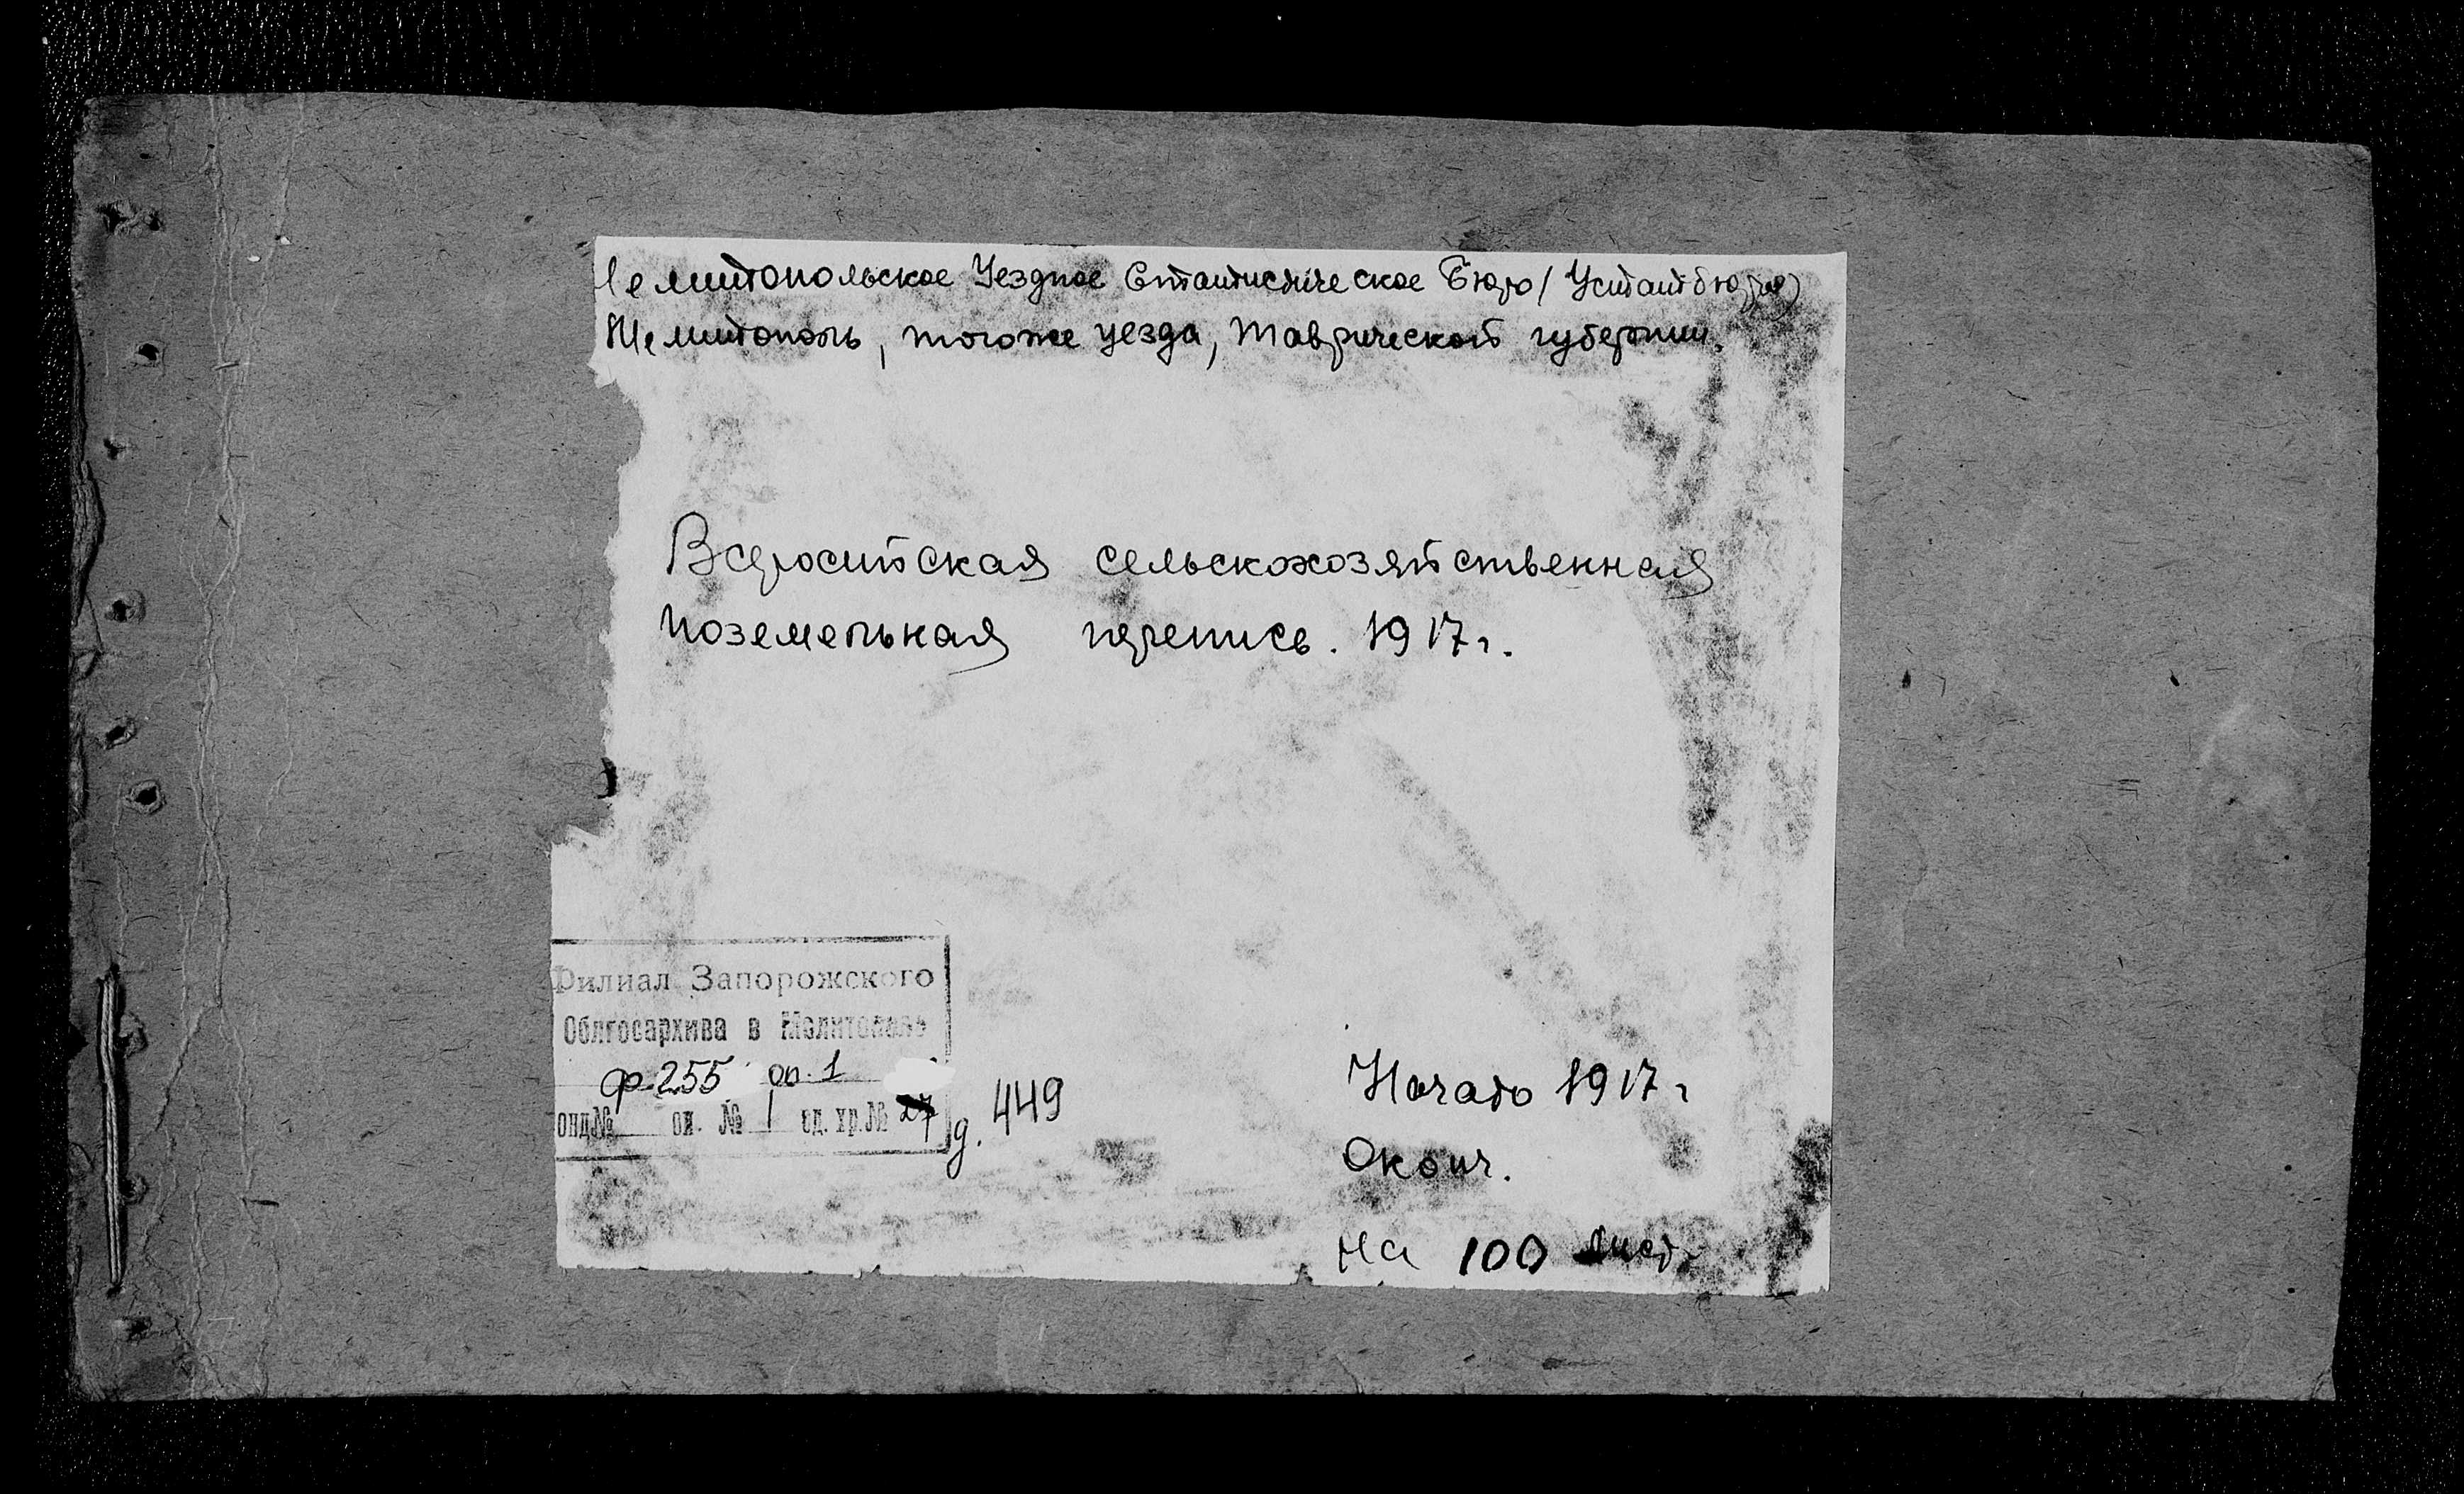 Мелитопольское Уездное Статистическое Бюро / Устатбюро)
Мелитополь, тогоже уезда, Таврической губернии.
Всеросийская сельскохозяйственная
поземельная перепись. 1917г.
Филиал Запорожского
Облгосархива в Мелитополе
ф.255 оп.1
онд№ оп. № 1 ед. хр.№ 27
д. 449
Начато 1917г
Оконч.
На 100 лист.